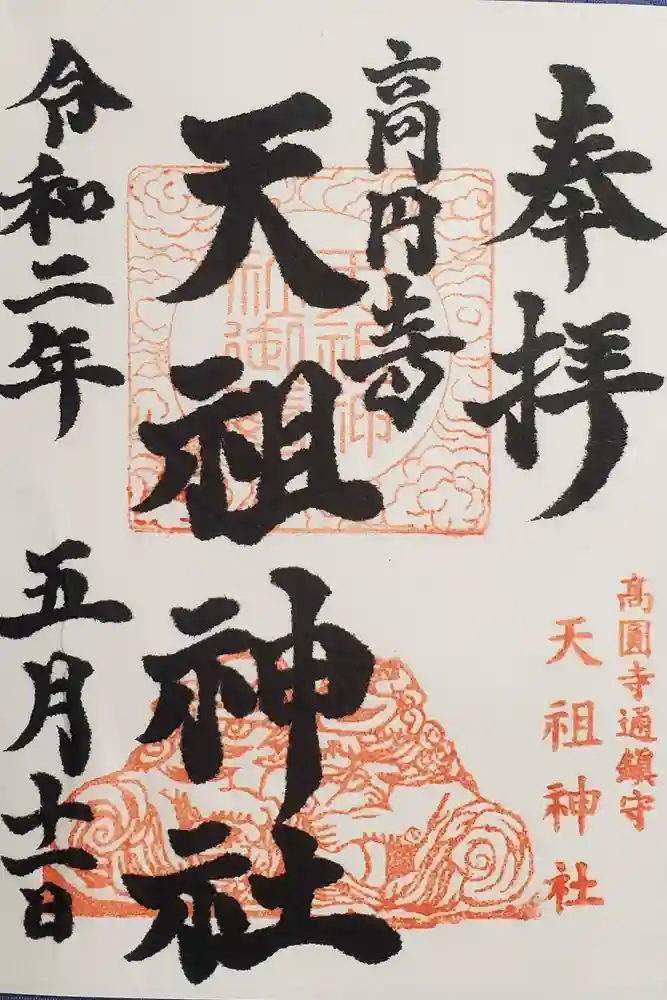 奉拝
髙圓寺通鎮守
天祖神社
高円寺
天祖神社
天祖神
社御
令和二年
五月十一日